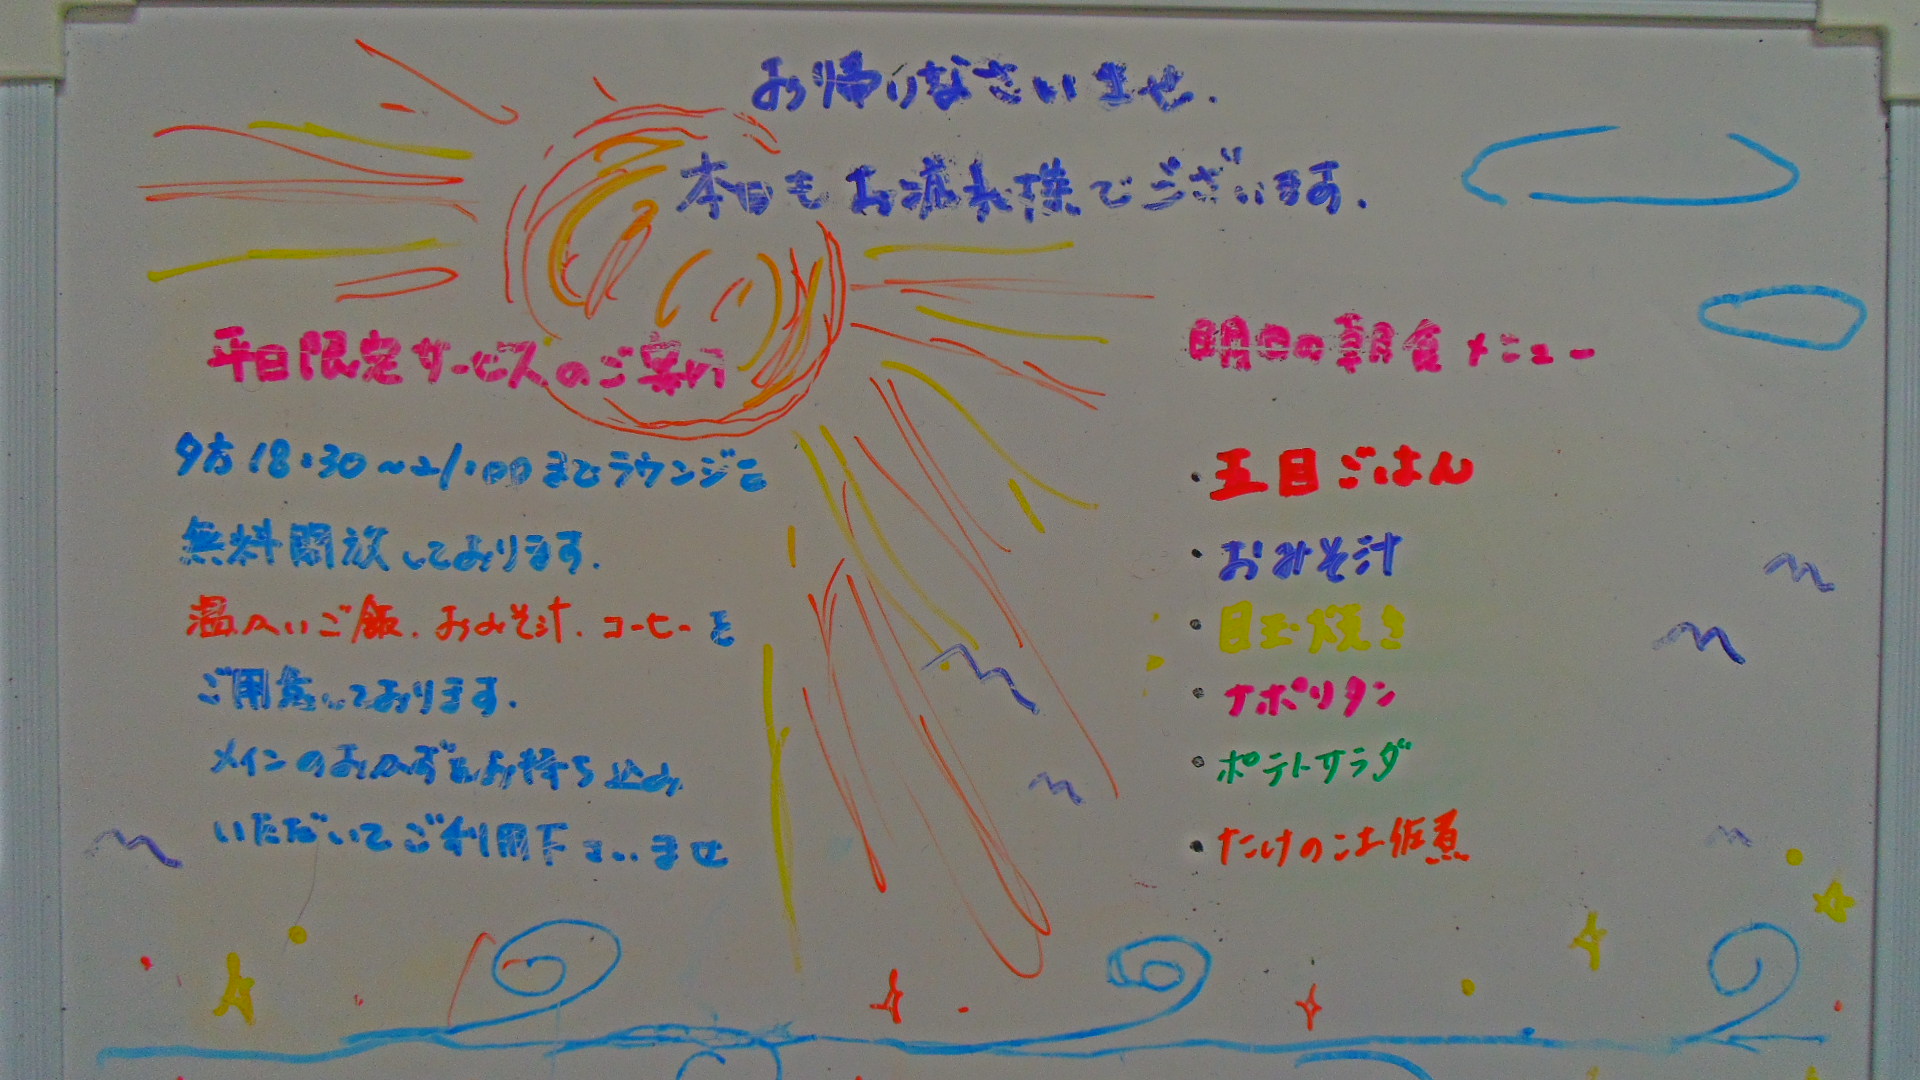 お帰りなさいませ.
本日もお疲れ様でございます.
平日限定サービスのご案内
夕方18:30～21:00までラウンジを
無料開放しております.
温かいご飯.おみそ汁.コーヒーを
ご用意しております.
メインのおかずをお持ち込み
いただいてご利用下さいませ
明日の朝食メニュー
・五目ごはん
・おみそ汁
・目玉焼き
・ナポリタン
・ポテトサラダ
・たけのこ土佐煮